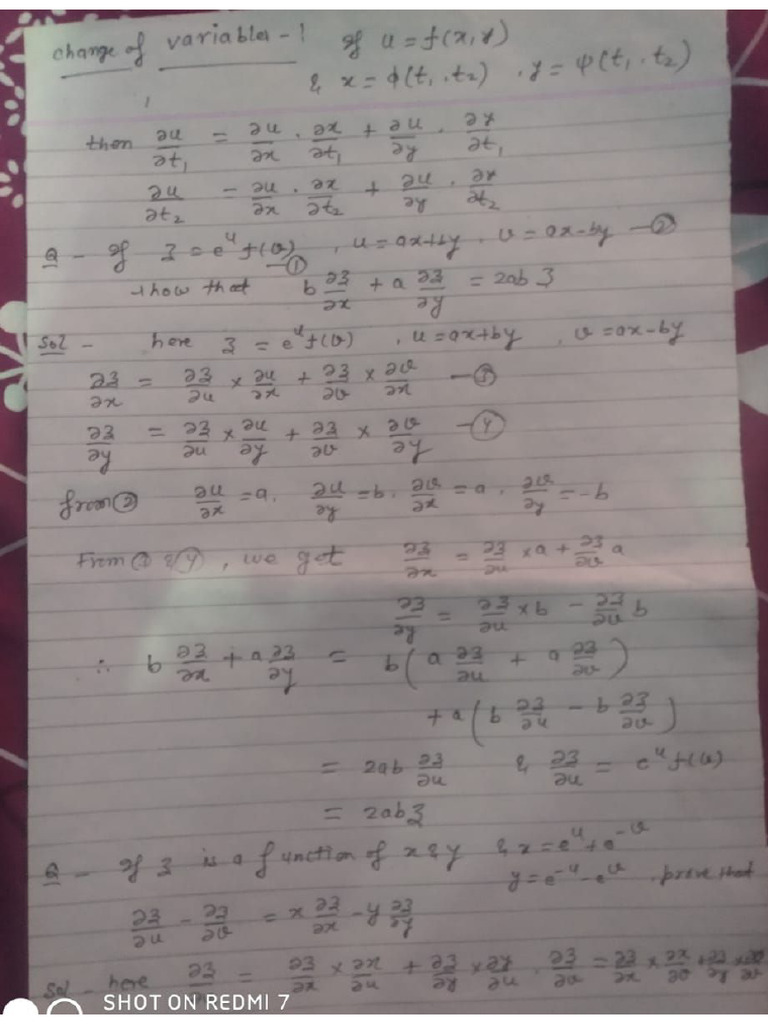 change of variables - 1 If u = f(x, y)
& x = φ(t₁, t₂), y = ψ(t₁, t₂)
then ∂u/∂t₁ = ∂u/∂x · ∂x/∂t₁ + ∂u/∂y · ∂y/∂t₁
∂u/∂t₂ = ∂u/∂x · ∂x/∂t₂ + ∂u/∂y · ∂y/∂t₂
Q - If z = eᵘ f(v) —①, u = ax+by, v = ax-by —②
show that b ∂z/∂x + a ∂z/∂y = 2ab z
Sol - here z = eᵘ f(v), u = ax+by, v = ax-by
∂z/∂x = ∂z/∂u × ∂u/∂x + ∂z/∂v × ∂v/∂x —③
∂z/∂y = ∂z/∂u × ∂u/∂y + ∂z/∂v × ∂v/∂y —④
from ② ∂u/∂x = a, ∂u/∂y = b, ∂v/∂x = a, ∂v/∂y = -b
From ③ & ④, we get ∂z/∂x = ∂z/∂u × a + ∂z/∂v a
∂z/∂y = ∂z/∂u × b - ∂z/∂v b
∴ b ∂z/∂x + a ∂z/∂y = b(a ∂z/∂u + a ∂z/∂v)
+ a(b ∂z/∂u - b ∂z/∂v)
= 2ab ∂z/∂u & ∂z/∂u = eᵘ f(v)
= 2ab z
Q - If z is a function of x & y & x = eᵘ + e⁻ᵛ
y = e⁻ᵘ - eᵛ, prove that
∂z/∂u - ∂z/∂v = x ∂z/∂x - y ∂z/∂y
Sol - here ∂z/∂u = ∂z/∂x × ∂x/∂u + ∂z/∂y × ∂y/∂u, ∂z/∂v = ∂z/∂x × ∂x/∂v + ∂z/∂y × ∂y/∂v
SHOT ON REDMI 7